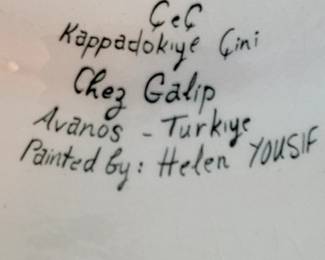 ÇeÇ
Kappadokıye Çini
Chez Galip
Avanos - Turkıye
Painted by: Helen YOUSIF